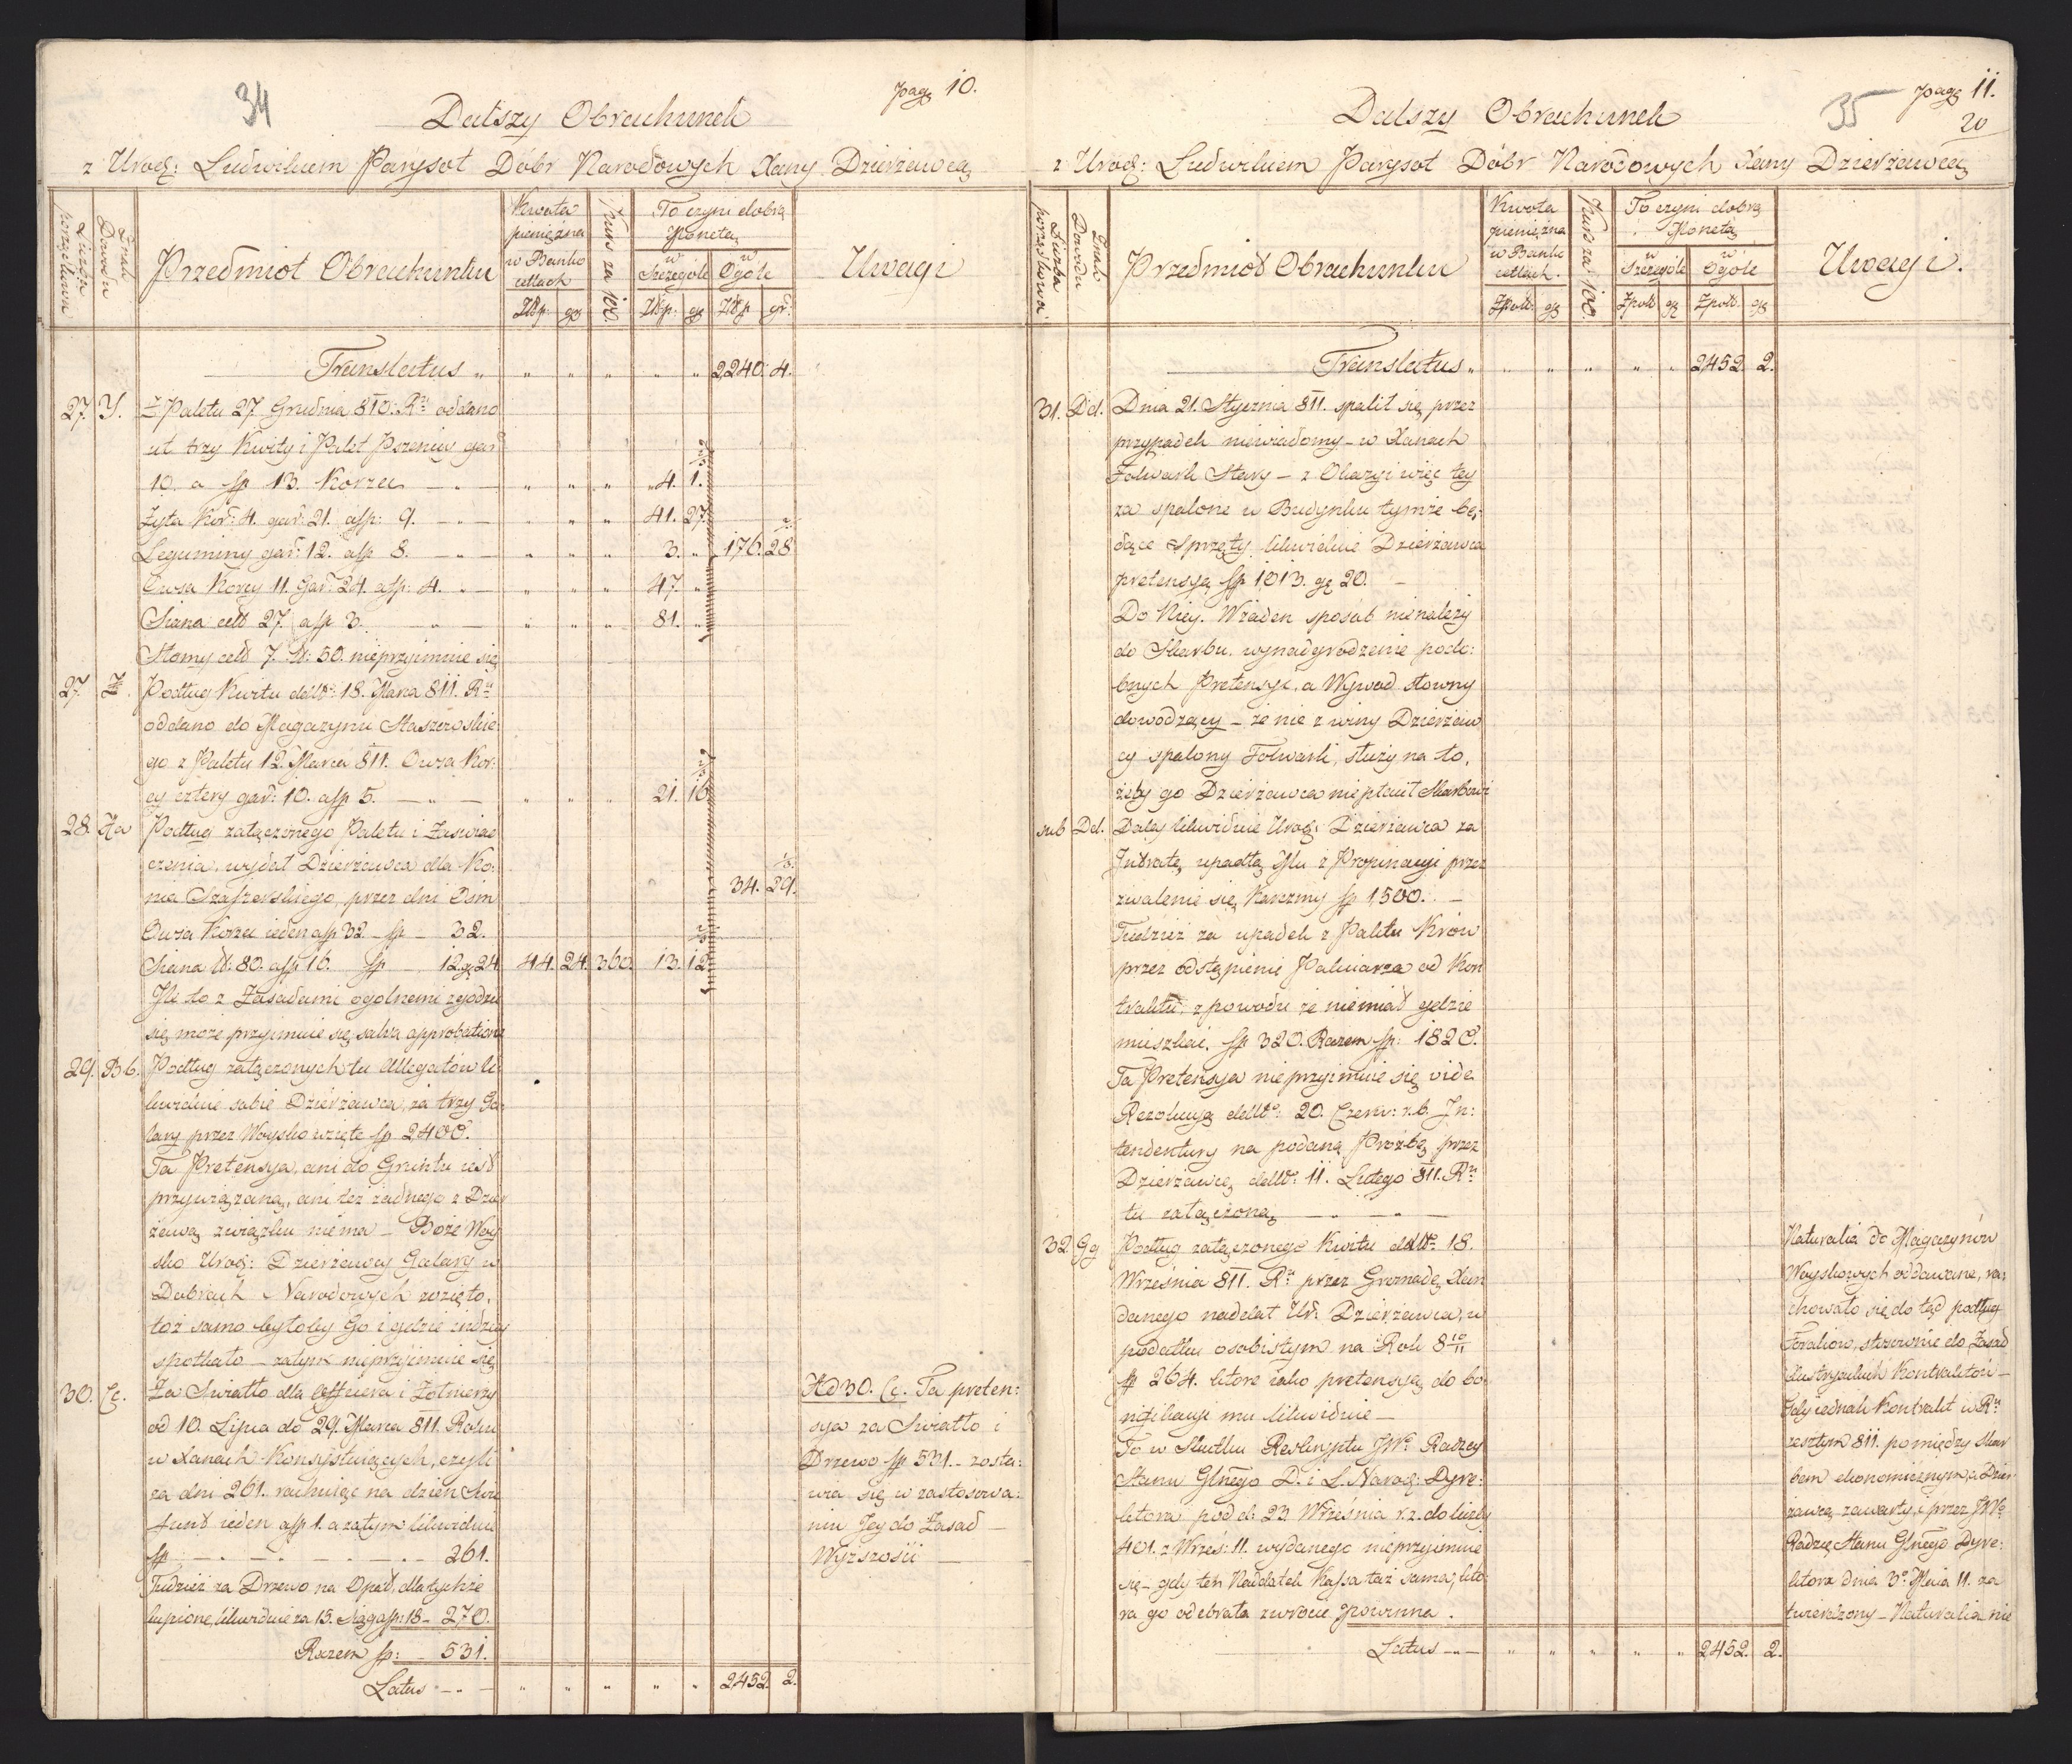 34
pag 10.
Dalszy Obrachunek
z Urodz: Ludwikiem Parysot Dóbr Narodowych Xany Dzierżawcą
Liczba porządkowa
Znak Dowodu
Przedmiot Obrachunku
Kwota pieniężna w Banko cetlach
Złłp: gr
Kurs za 100.
To czyni dobrą Monetą
w Szczególe w Ogóle
Złłp: gr Złłp gr:
Uwagi
Translatus „ „ „ „ „ „ 2240. 4.
27. Y. Z Paletu 27. Grudnia 810. Ru oddano
ut trzy Kwity i Palet Pszenicy gar
10. a fp 13. Korzec — „ — „ „ „ 4. 1.
Żyta Kor: 4. gar: 21. afp: 9. — „ — „ „ „ 41. 27.
Leguminy gar: 12. afp 8. — „ — „ „ „ 3. „ 176. 28
Owsa Korcy 11. Gar: 24. afp: 4. „ — „ „ „ 47. „
Siana cet 27. afp 3. — „ — „ „ „ 81. „
Słomy cet 7. tt: 50. nieprzyimuie się
27. Z. Podług Kwitu ddtto: 18. Marca 811. Ru
oddano do Magazynu Staszowskie
go z Paletu 12. Marca 811. Owsa Kor:
cy cztery gar: 10. afp 5. — „ — „ „ „ 21. 16
28. Aa Podług załączonego Paletu i Zaswiad
czenia, wydał Dzierżawca dla Ko:
nia Szafzerskiego, przez dni Osm 34. 29.
Owsa Korzec ieden afp 32 — fp — 32.
Siana tt: 80. afp 16. fp — 12. gr 24 44. 24. 360. 13. 12
Ile to z Zasadami ogolnemi zgodzić
się może przyimuie się salva approbatione
29. Bb. Podług załączonych tu Allegatów li:
kwiduie sobie Dzierżawca, za trzy Ga:
lary przez Woysko wzięte fp 2400.
Ta Pretensya, ani do Gruntu iest
przywiązaną, ani też żadnego z Dzier
żawą związku niema — Boże Woy
sko Urodz: Dzierżawcy Galary w
Dobrach Narodowych wzięto,
toż samo byłoby Go i gdzie indziey
spotkało — zatym nieprzyimuie się
30. Cc. Za Swiatło dla Officiera i Żołnierzy
od 10. Lipca do 29. Marca 811. Roku
w Xanach Konsystuiących, czyli
za dni 261. rachuiąc na dzień Swie
funt ieden afp 1. a zatym likwiduie
fp — „ — „ — „ — 261.
Tudzież za Drzewo na Opał, dla tychże
kupione, likwiduie za 15. Siąg afp: 18 — 270.
Razem fp: — 531.
Latus — „ — „ „ „ „ „ 2452. 2.
Ad 30. Cc. Ta preten:
sya za Swiatło i
Drzewo fp 531. — zosta:
wia się w zastosowa:
niu Jey do Zasad —
Wyższości —
35
pag 11.
20
Dalszy Obrachunek
z Urodz: Ludwikiem Parysot Dóbr Narodowych Xany Dzierżawcą
Liczba porządkowa.
Znak Dowodu
Przedmiot Obrachunku
Kwota pieniężna w Banko cetlach.
Złpol: gr
Kurs za 100.
To czyni dobrą Monetą
w Szczególe w Ogóle
Złpol gr Złpol. gr
Uwagi.
Translatus „ „ „ „ „ „ 2452. 2.
31. Dd. Dnia 21. Stycznia 811. spalił się przez
przypadek niewiadomy — w Xanach
Folwark Stary — z Okazyi więc tey
za spalone w Budynku tymże bę:
dące Sprzęty likwiduie Dzierżawca
pretensyą fp 1013. gr 20. —
Do Niey. W żaden sposób nienależy
do Skarbu wynadgrodzenie podo:
bnych Pretensyi, a Wywod słowny
dowodzący — że nie z winy Dzierżaw
cy spalony Folwark, służy na to,
żeby go Dzierżawca niepłacił Skarbowi
sub Dd. Daley likwiduie Urodz: Dzierżawca za
Intratę upadłą Mu z Propinacyi przez
zwalenie się Karczmy fp 1,500. —
Tudzież za upadek z Paktu Krów
przez odstąpienie Pakciarza od Kon
traktu, z powodu że niemiał gdzie
mieszkać. fp 320. Razem fp: 1820.
Ta Pretensya nieprzyimuie się vide
Rezolucyą ddtto: 20. Czerw: r. b. In:
tendentury na podaną Prozbę przez
Dzierżawcę ddtto: 11. Lutego 811. Ru
tu załączoną — „ — „ —
32. Gg Podług załączonego Kwitu ddtto: 18.
Września 811. Ru przez Gromadę Xan
danego nadDał Ur: Dzierżawca, w
podatku osobistym na Rok 8 10/11
fp 264. które iako pretensyą do bo:
nifikacyi mu likwiduie —
To w Skutku Reskryptu JWo Radzcy
Stanu Głnego D. i L. Narod: Dyre:
ktora pod d. 23 Września r. z. do liczby
401. z Wrześ: 11. wydanego nieprzyimuie
się — gdy ten Naddatek Kassa taż sama, któ
ra go odebrała zwrócić powinna.
Latus — „ — „ „ „ „ „ 2452. 2.
Naturalia do Magazynów
Woyskowych oddawane, ra:
chowało się do tąd podług
Foraliów, stosownie do Zasad
Austryackich Kontraktów —
Gdy iednak Kontrakt w Ru
zeszłym 811. pomiędzy Skar
bem ekonomicznym, a Dzier
żawcą zawarty, i przez JWo
Radzcę Stanu Głnego Dyre:
ktora dnia 3o Maia 11. za
twierdzony — Naturalia nie